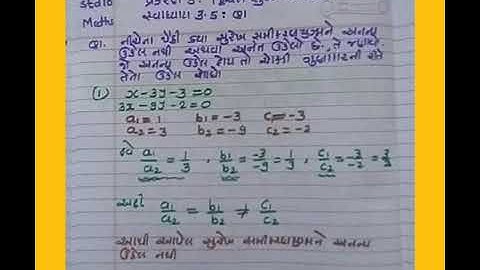 Maths
સ્વાધ્યાય 3.5 : Q1
Q1. નીચેના પૈકી કયા સુરેખ સમીકરણયુગ્મને અનન્ય
ઉકેલ નથી અથવા અનંત ઉકેલો છે, તે જણાવો.
જો અનન્ય ઉકેલ હોય તો ચોકડી ગુણાકારની રીતે
તેનો ઉકેલ શોધો
(1) x-3y-3=0
3x-9y-2=0
a1=1 b1=-3 c1=-3
a2=3 b2=-9 c2=-2
હવે a1/a2 = 1/3 , b1/b2 = -3/-9 = 1/3 , c1/c2 = -3/-2 = 3/2
અહીં a1/a2 = b1/b2 ≠ c1/c2
આથી આપેલ સુરેખ સમીકરણયુગ્મને અનન્ય
ઉકેલ નથી